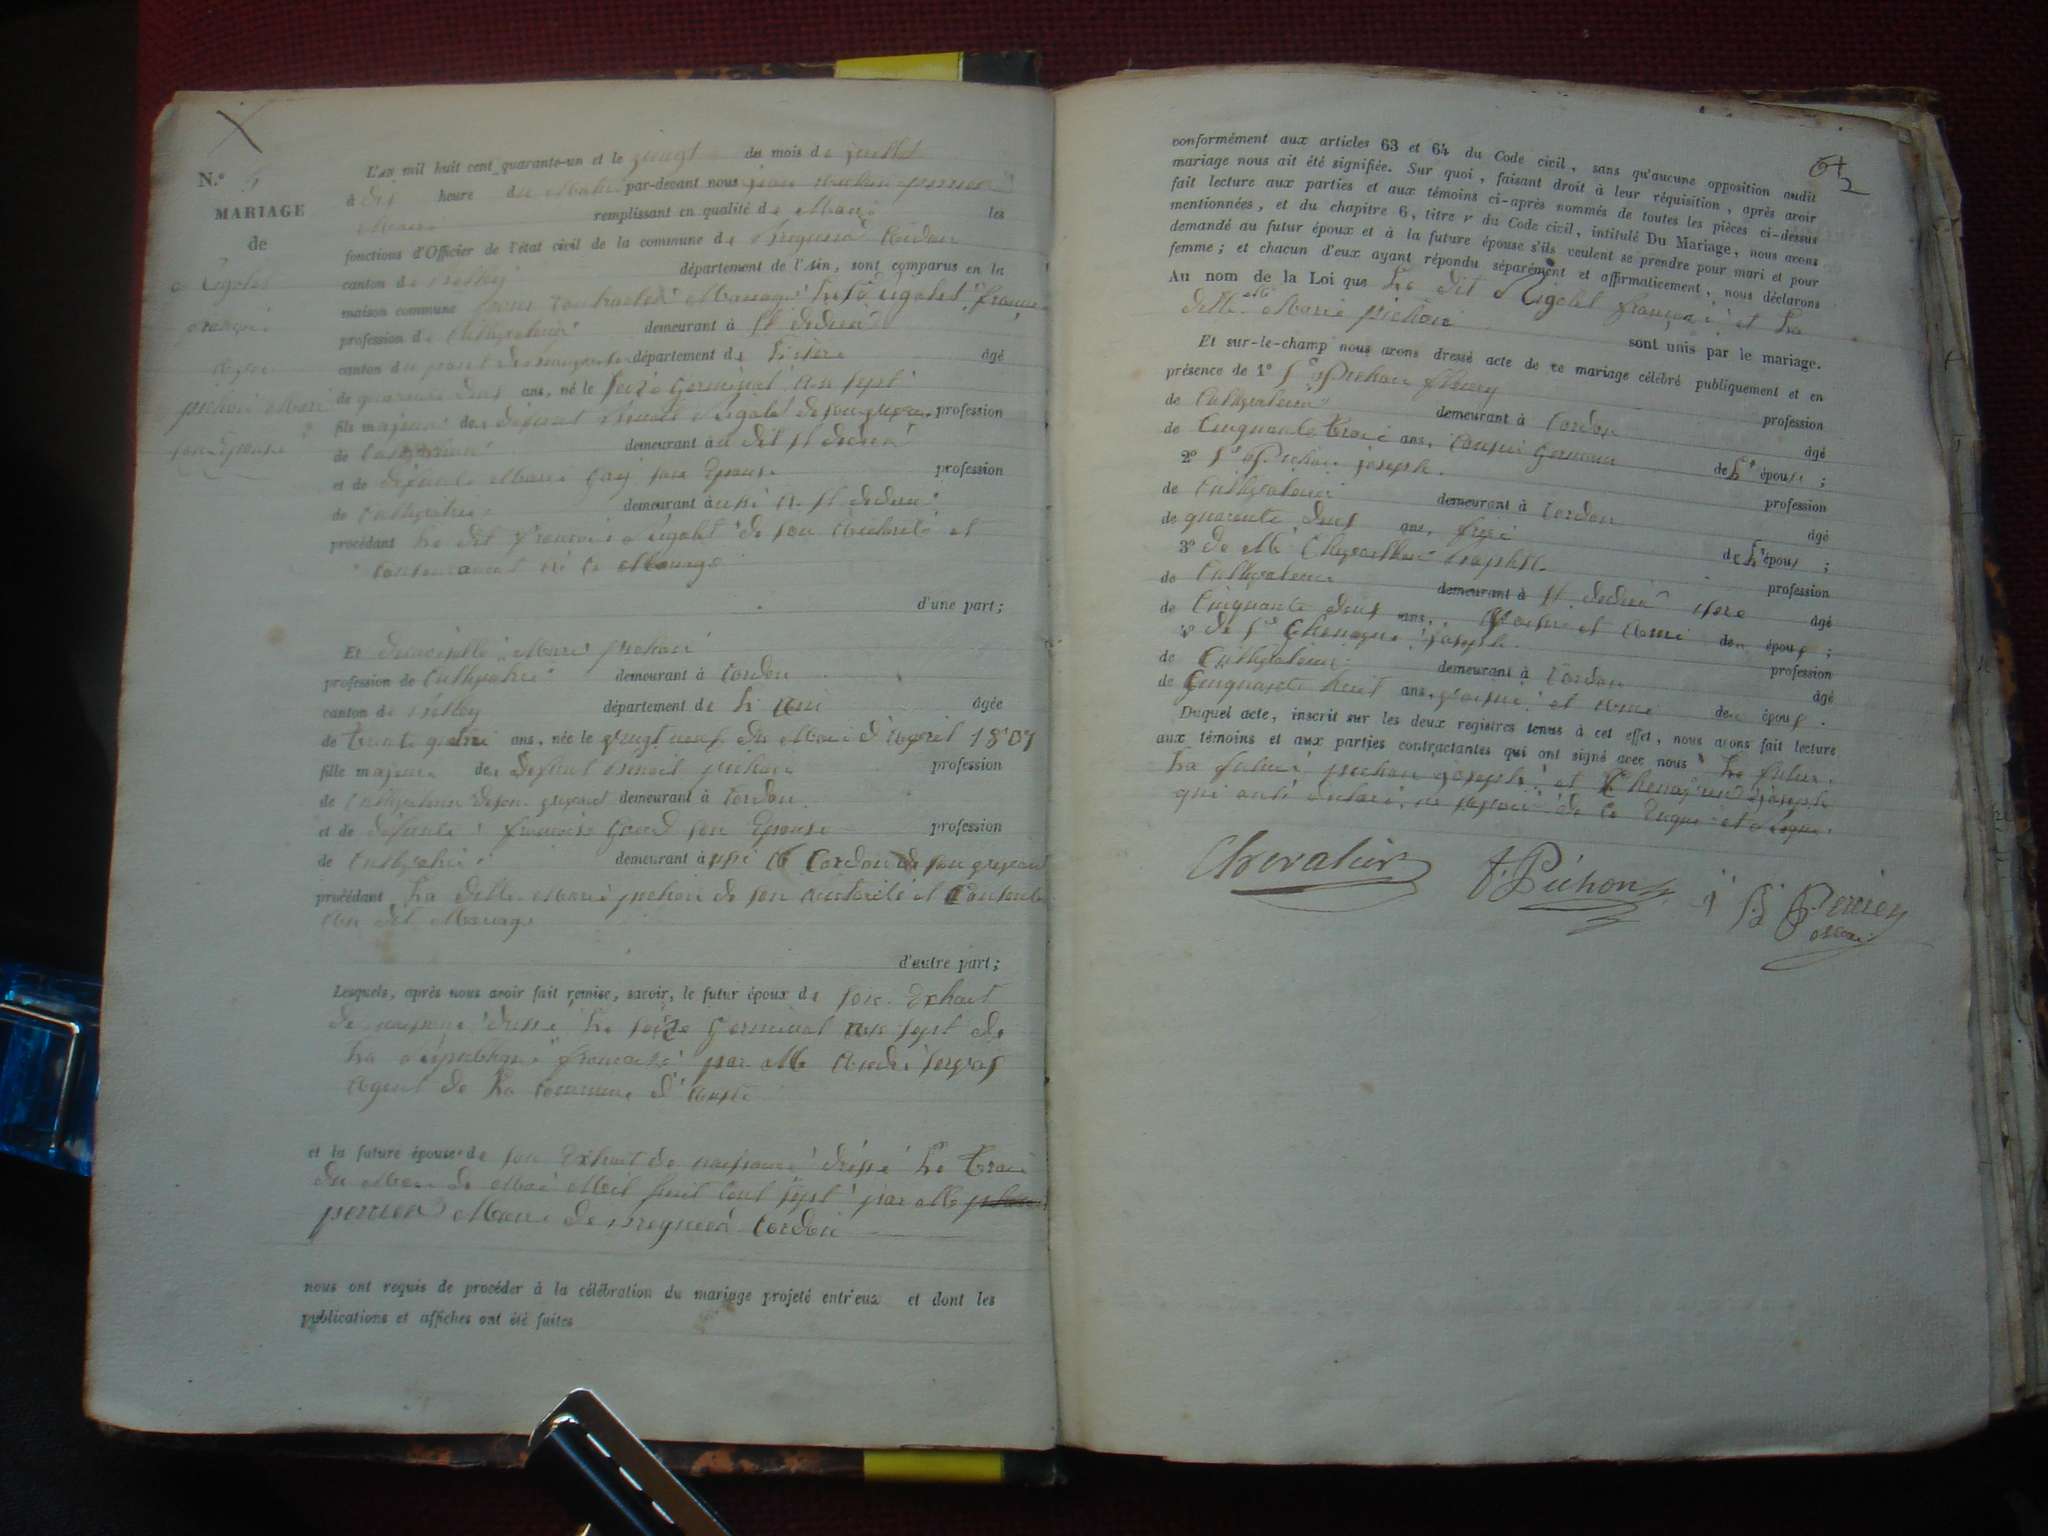 N.º 5
MARIAGE
de
Rigolet
françois
pichon Marie
son Epouse
L'an mil huit cent quarante-un et le vingt du mois de juillet
à dix heure du Matin par-devant nous
Maire remplissant en qualité de Maire les
fonctions d'Officier de l'état civil de la commune de Bregnier Cordon
canton de Belley département de l'Ain, sont comparus en la
maison commune pour contracter Mariage Le Sr Rigolet françois
profession de Cultivateur demeurant à St didier
canton du pont département de L'isère âgé
de quarante deux ans, né le seize Germinal an sept
fils majeur de defunt Benoit Rigolet de son vivant profession
de Cultivateur demeurant au dit St didier
et de defunte Marie son Epouse profession
de Cultivatrice demeurant aussi à St didier
procédant Le dit françois Rigolet de son autorité et
d'une part;
Et demoiselle Marie pichon
profession de Cultivatrice demeurant à Cordon
canton de Belley département de L'Ain âgée
de trente quatre ans, née le vingt neuf du Mois d'Avril 1807
fille majeure de defunt Benoit pichon profession
de Cultivateur de son vivant demeurant à Cordon
et de defunte françoise son Epouse profession
de Cultivatrice demeurant aussi à Cordon de son vivant
procédant La dite Marie pichon de son autorité et
au dit Mariage
d'autre part;
Lesquels, après nous avoir fait remise, savoir, le futur époux de son Extrait
de naissance dressé Le seize Germinal an sept de
La République française par Mr André
Agent de La commune d'Aoste
et la future épouse de son Extrait de naissance dressé Le trois
du Mois de Mai Mil huit cent sept par Mr
perrier Maire de Bregnier Cordon
nous ont requis de procéder à la célébration du mariage projeté entr'eux et dont les
publications et affiches ont été faites
conformément aux articles 63 et 64 du Code civil, sans qu'aucune opposition audit
mariage nous ait été signifiée. Sur quoi, faisant droit à leur réquisition, après avoir
fait lecture aux parties et aux témoins ci-après nommés de toutes les pièces ci-dessus
mentionnées, et du chapitre 6, titre v du Code civil, intitulé Du Mariage, nous avons
demandé au futur époux et à la future épouse s'ils veulent se prendre pour mari et pour
femme; et chacun d'eux ayant répondu séparément et affirmativement, nous déclarons
Au nom de la Loi que Le dit Rigolet françois et La
delle Marie pichon sont unis par le mariage.
Et sur-le-champ nous avons dressé acte de ce mariage célébré publiquement et en
présence de 1º Sr Pichon profession
de Cultivateur demeurant à Cordon âgé
de Cinquante trois ans, cousin Germain de L'épouse;
2º Sr Pichon joseph profession
de Cultivateur demeurant à Cordon âgé
de quarante deux ans, frère de L'épouse;
3º de Mr profession
de Cultivateur demeurant à St didier isere âgé
de Cinquante deux ans, Voisin et Ami des époux;
4º de Sr joseph profession
de Cultivateur demeurant à Cordon âgé
de Cinquante huit ans, voisin et ami des époux.
Duquel acte, inscrit sur les deux registres tenus à cet effet, nous avons fait lecture
aux témoins et aux parties contractantes qui ont signé avec nous Le futur
La future pichon joseph et joseph
qui ont déclaré ne savoir de ce Enquis et Requis
Chevalier F. Pichon J B Perrier
Maire